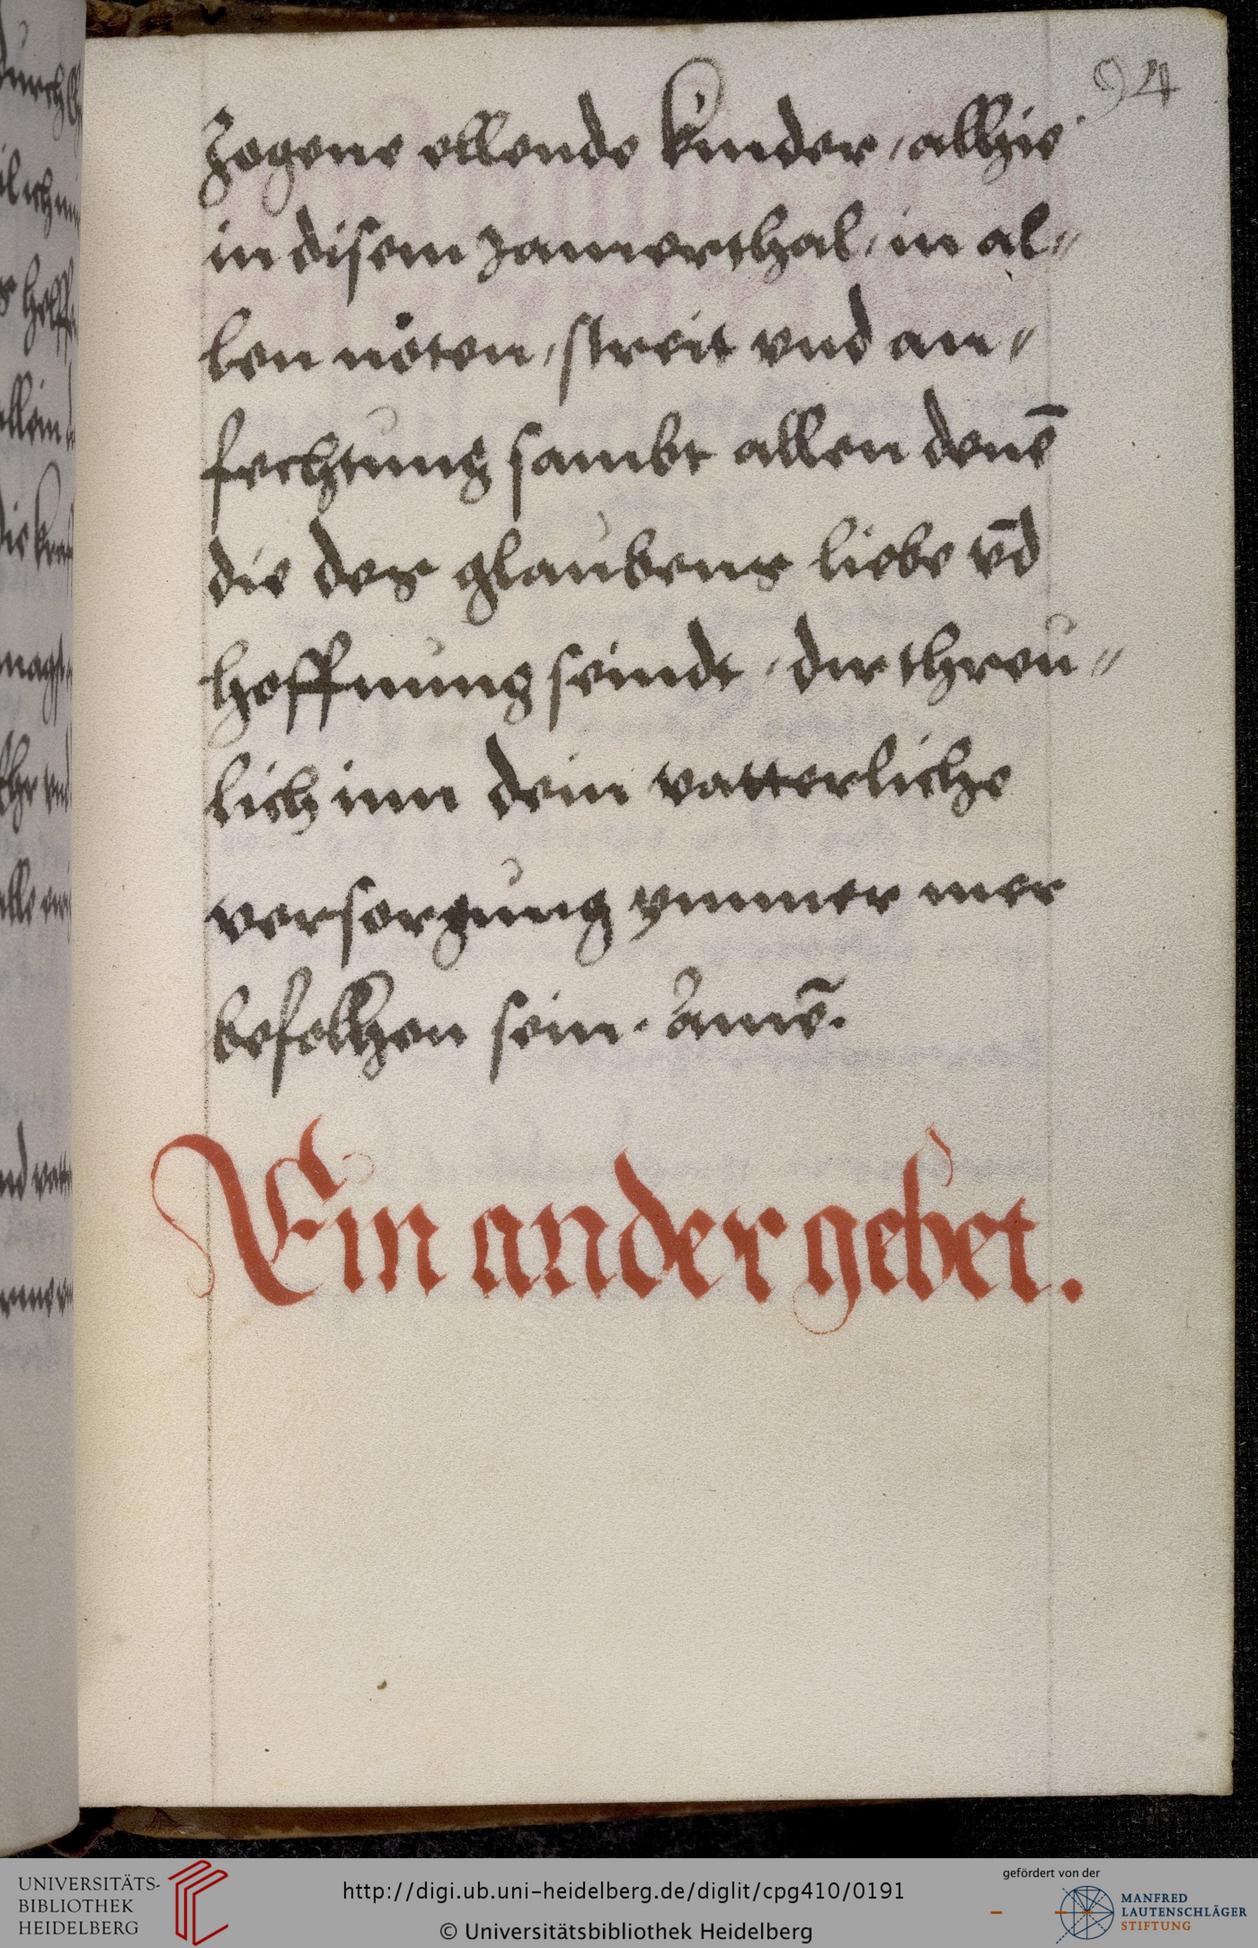 94
zogene ellende kinder, allhie
in disem Jamerthal, in al⸗
len nöten, streit vnd an⸗
fechtung sambt allen denē
die des glaubens liebe vn̄d
hoffnung seindt, dir threu⸗
lich inn dein vatterliche
versorgung ymmer mer
befolhen sein. Amē.
Ein ander gebet.
UNIVERSITÄTS-
BIBLIOTHEK
HEIDELBERG
http://digi.ub.uni-heidelberg.de/diglit/cpg410/0191
© Universitätsbibliothek Heidelberg
gefördert von der
MANFRED
LAUTENSCHLÄGER
STIFTUNG